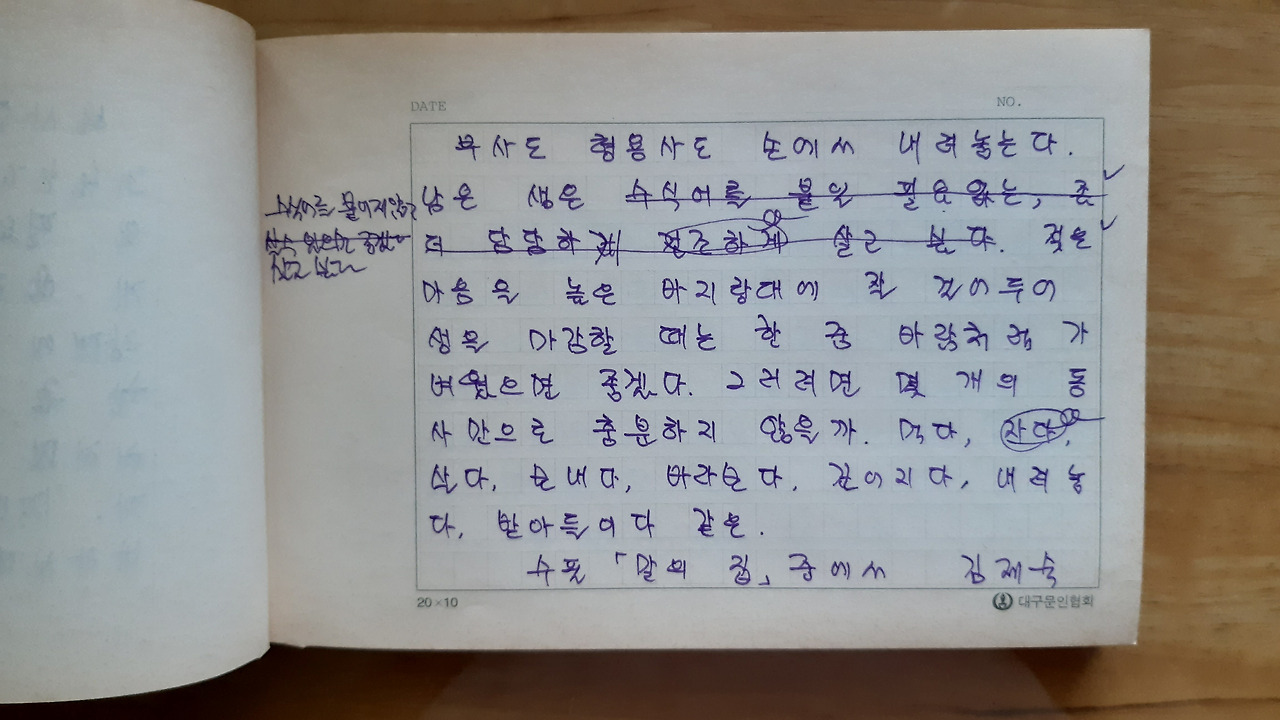 DATE
NO.
부사도 형용사도 손에서 내려놓는다.
남은 생은 수식어를 붙일 필요 없는, 좀
더 담담하게 건조하게 살고 싶다. 젖은
마음을 높은 바지랑대에 잘 걸어두어
생을 마감할 때는 한 줌 바람처럼 가
벼웠으면 좋겠다. 그러려면 몇 개의 동
사만으로 충분하지 않을까. 먹다, 자다,
살다, 보내다, 바라본다, 깊어지다, 내려놓
다, 받아들이다 같은.
수필 「말의 집」 중에서 김제숙
20×10
대구문인협회
수식어를 붙이지 않고
살고 싶다